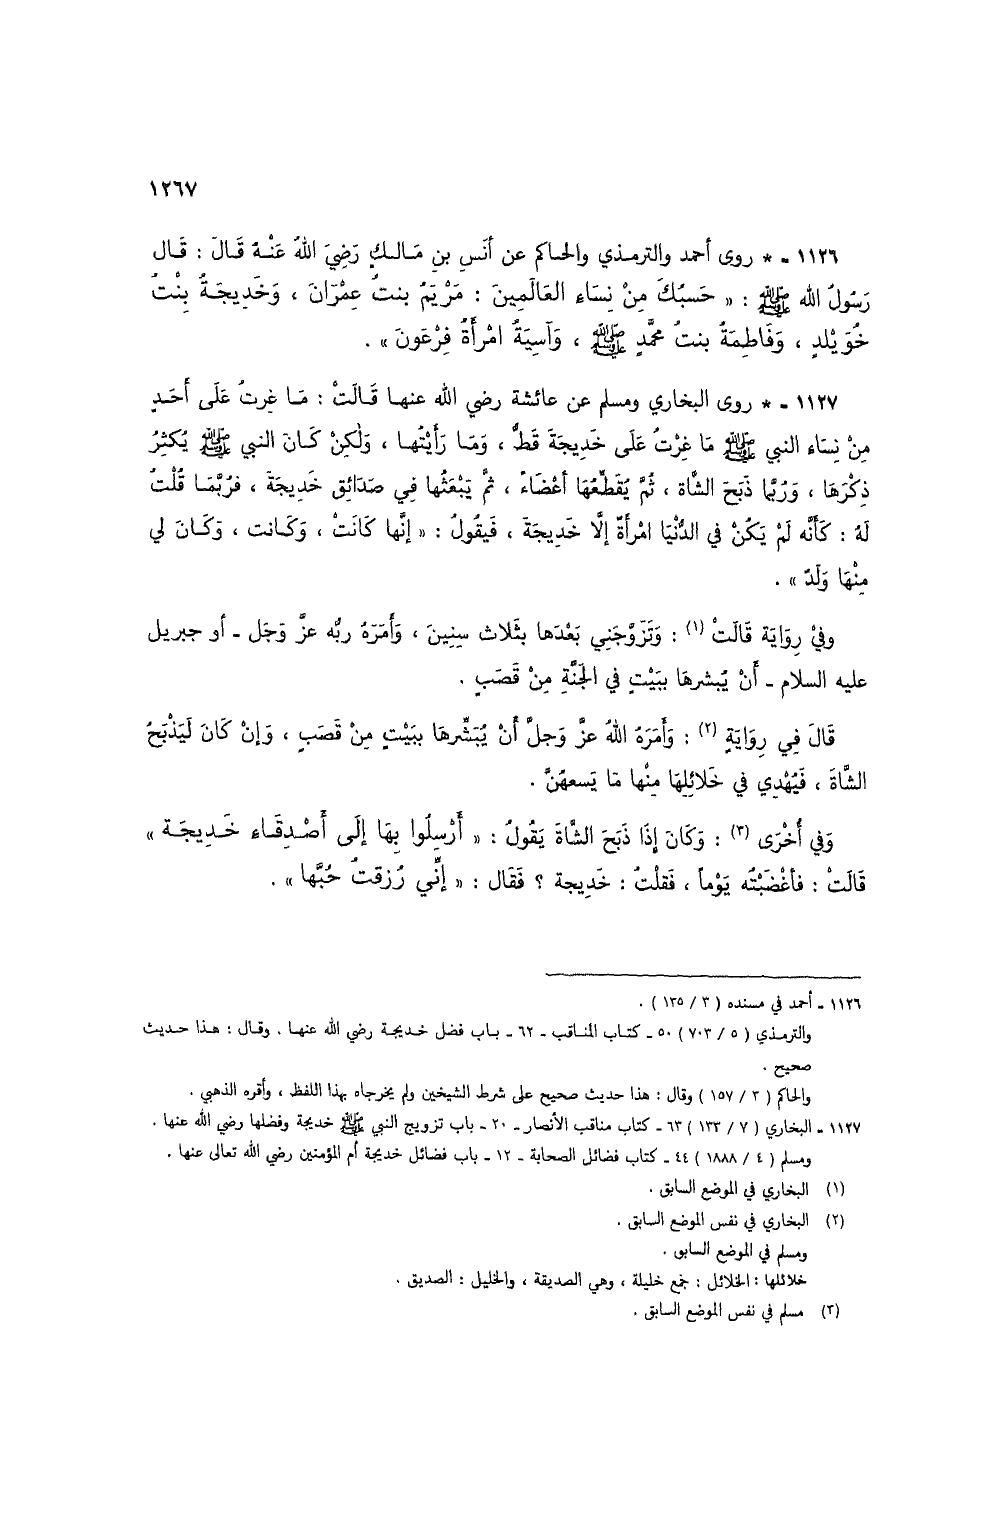 ١٢٦٧
١١٢٦ - * روى أحمد والترمذي والحاكم عن أَنَسِ بنِ مَالكٍ رَضِيَ اللهُ عَنْهُ قَالَ : قَال
رَسُولُ الله ﷺ : « حَسبُكَ مِنْ نِسَاءِ العَالَمِينَ : مَرْيَمُ بنتُ عِمْرَانَ ، وَخَدِيجَةُ بِنْتُ
خُوَيْلدٍ ، وَفَاطِمَةُ بنتُ محمَّدٍ ﷺ ، وَآسِيَةُ امْرأَةُ فِرْعَونَ » .
١١٢٧ - * روى البخاري ومسلم عن عائشة رضي الله عنها قَالَتْ : مَا غِرتُ عَلَى أَحَدٍ
مِنْ نِسَاء النبي ﷺ مَا غِرْتُ عَلَى خَدِيجَةَ قَطُّ ، وَمَا رَأَيْتُها ، وَلٰكِنْ كَانَ النبي ﷺ يُكثِرُ
ذِكْرَهَا ، وَرُبَّما ذَبَحَ الشَّاة ، ثُمَّ يُقَطِّعُهَا أعْضَاءً ، ثمَّ يَبْعَثُها فِي صَدَائِق خَدِيجَةَ ، فرُبَّمَا قُلْتُ
لَهُ : كَأَنَّه لَمْ يَكُنْ في الدُّنْيَا امْرأَةٌ إلَّا خَدِيجَةَ ، فَيقُولُ : « إنَّها كَانَتْ ، وَكَانت ، وَكَانَ لي
مِنْهَا وَلَدٌ » .
وفيْ رِوَايَة قَالَتْ (١) : وَتَزَوَّجَنِي بَعْدَها بثَلاث سِنِينَ ، وَأَمَرَهُ ربُّه عزَّ وَجَل - أو جبريل
عليه السلام - أَنْ يُبشرهَا ببَيْتٍ في الجَنَّةِ مِنْ قَصَبٍ .
قَالَ فِي رِوَايَةٍ (٢) : وَأَمَرَهُ اللهُ عزَّ وَجلَّ أَنْ يُبَشِّرها ببَيْتٍ مِنْ قَصَبٍ ، وَإنْ كَانَ لَيَذْبَحُ
الشَّاةَ ، فَيُهْدِي في خَلائِلِهَا مِنْها مَا يَسعهُنَّ .
وَفي أُخْرَى (٣) : وَكَانَ إذَا ذَبَحَ الشَّاةَ يَقُولُ : « أَرْسِلُوا بِهَا إلَى أَصْدِقَاء خَدِيجَة »
قَالَتْ : فأغْضَبْتُه يَوْماً ، فَقلْتُ : خَدِيجة ؟ فَقَال : « إنِّي رُزقتُ حُبَّها » .
١١٢٦ - أحمد في مسنده ( ٣ / ١٣٥ ) .
والترمذي ( ٥ / ٧٠٣ ) ٥٠ - كتاب المناقب - ٦٢ - باب فضل خديجة رضي الله عنها . وقال : هذا حديث
صحيح .
والحاكم ( ٣ / ١٥٧ ) وقال : هذا حديث صحيح على شرط الشيخين ولم يخرجاه بهذا اللفظ ، وأقره الذهبي .
١١٢٧ - البخاري ( ٧ / ١٣٣ ) ٦٣ - كتاب مناقب الأنصار - ٢٠ - باب تزويج النبي ﷺ خديجة وفضلها رضي الله عنها .
ومسلم ( ٤ / ١٨٨٨ ) ٤٤ - كتاب فضائل الصحابة - ١٢ - باب فضائل خديجة أم المؤمنين رضي الله تعالى عنها .
(١) البخاري في الموضع السابق .
(٢) البخاري في نفس الموضع السابق .
ومسلم في الموضع السابق .
خلائلها : الخلائل : جمع خليلة ، وهي الصديقة ، والخليل : الصديق .
(٣) مسلم في نفس الموضع السابق .